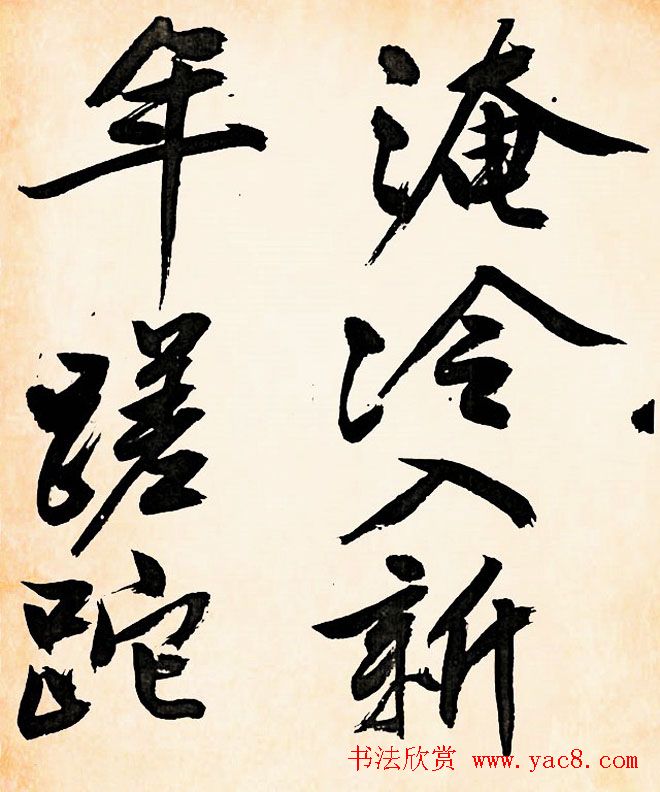 淹泠入新
年蹉跎
书法欣赏 www.yac8.com